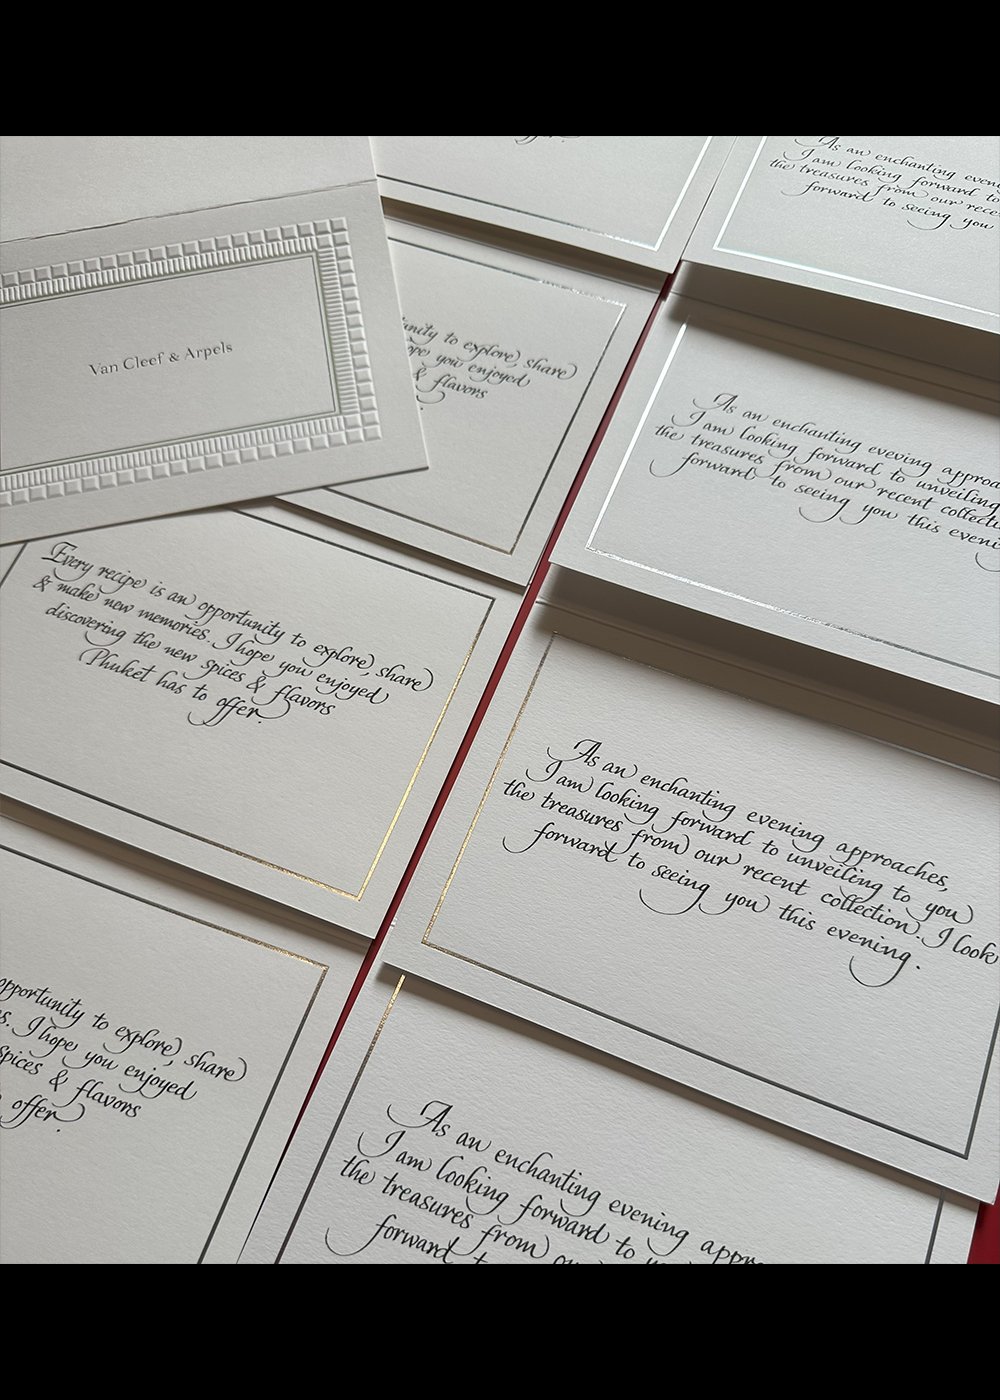 offer.
As an enchanting even
I am looking forward to
the treasures from our rece
forward to seeing you
Van Cleef & Arpels
unity to explore, share
ope you enjoyed
& flavors
As an enchanting eveving approa
I am looking forward to unveiling
the treasures from our recent collecti
forward to seeing you this eveni
Every recipe is an opportunity to explore, share
& make new memories. I hope you enjoyed
discovering the new spices & flavors
Phuket has to offer.
As an enchanting evening approaches,
I am looking forward to unveiling to you
the treasures from our recent collection. I look
forward to seeing you this evening.
opportunity to explore, share
s. I hope you enjoyed
spices & flavors
offer.
As an enchanting evening appr
I am looking forward to u
the treasures from ou
forward t